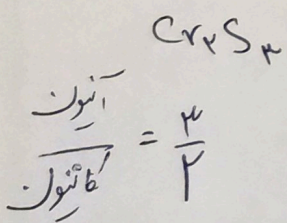 Cr۲S۳
آنیون / کاتیون = ۳/۲